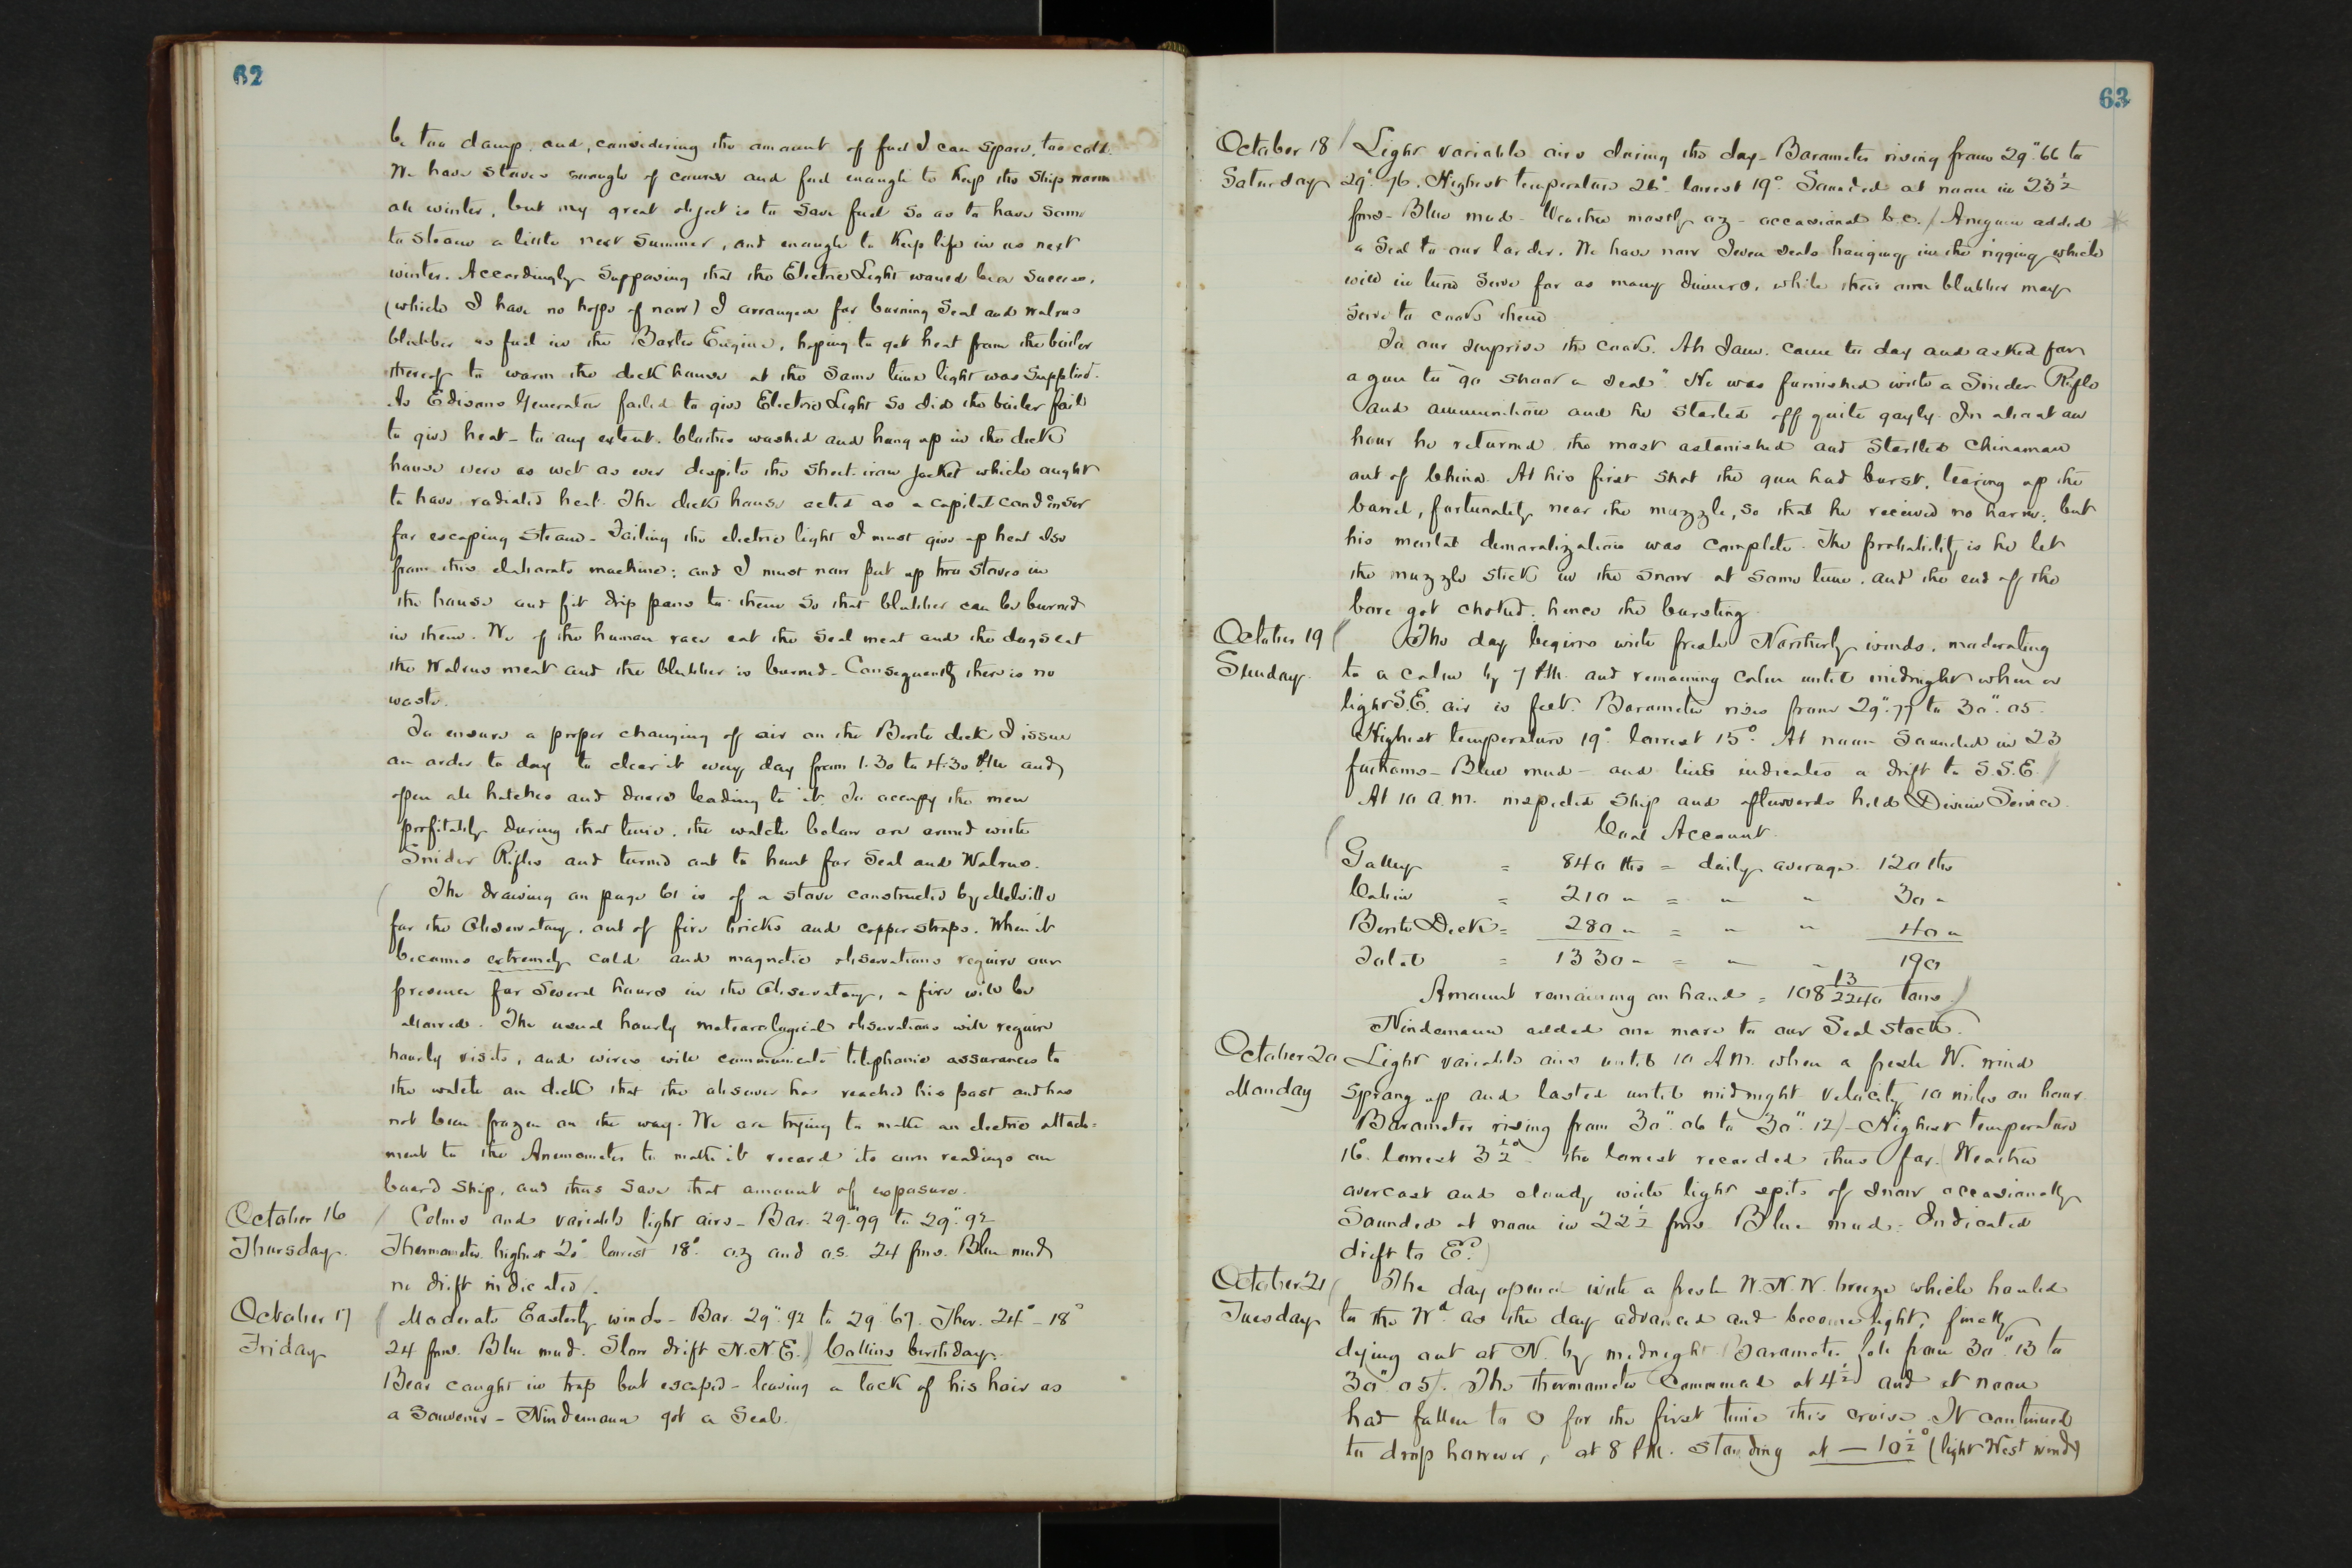 62
be too damp, and, considering the amount of fuel I can spare, too cold.
We have stoves enough of course and fuel enough to keep the ship warm
all winter, but my great object is to save fuel so as to have some
to steam a little next summer, and enough to keep life in us next
winter. Accordingly supposing that the Electric Light would be a success,
(which I have no hope of now) I arranged for burning Seal and Walrus
blubber as fuel in the Baxter Engine, hoping to get heat from the boiler
thereof to warm the deck house at the same time light was supplied.
As Edisons Generator failed to give Electric Light so did the boiler fail
to give heat - to any extent. Clothes washed and hung up in the deck
house were as wet as ever despite the sheet-iron jacket which ought
to have radiated heat. The deck house acted as a capital condenser
for escaping steam - Failing the electric light I must give up heat also
from this elaborate machine; and I must now put up two stoves in
the house and fit drip pans to them so that blubber can be burned
in them. We of the human race eat the seal meat and the dogs eat
the Walrus meat and the blubber is burned - Consequently there is no
waste.
To ensure a proper changing of air on the Berth deck I issue
an order to day to clear it every day from 1.30 to 4.30 P.M. and
open all hatches and doors leading to it. To occupy the men
profitably during that time, the watch below are armed with
Snider Rifles and turned out to hunt for Seal and Walrus.
( The drawing on page 61 is of a stove constructed by Melville
for the Observatory, out of fire bricks and copper straps. When it
becomes extremely cold and magnetic observations require our
presence for several hours in the Observatory, a fire will be
allowed. The usual hourly meteorological observations will require
hourly visits, and wires will communicate telephonic assurances to
the watch on deck that the observer has reached his post and has
not been frozen on the way. We are trying to make an electric attach=
ment to the Anemometer to make it record its own readings on
board ship, and thus save that amount of exposure.
October 16
Thursday.
/ Calms and variable light airs - Bar. 29".99 to 29".92
Thermometer highest 20° lowest 18°. o.z and o.s. 24 fms. Blue mud
no drift indicated).
October 17
Friday
( Moderate Easterly winds - Bar. 29".92 to 29.67. Ther. 24° - 18°
24 fms. Blue mud. Slow drift N.N.E.) Collins birthday.
Bear caught in trap but escaped - leaving a lock of his hair as
a souvenir - Nindemann got a seal.
63
October 18
Saturday
/ Light variable airs during the day - Barometer rising from 29".66 to
29".76. Highest temperature 26° lowest 19°. Sounded at noon in 23½
fms - Blue mud - Weather mostly oz - occasional b.c. / Aneguin added
a seal to our larder. We have now seven seals hanging in the rigging which
will in turn serve for as many dinners, while their own blubber may
serve to cook them
To our surprise the cook, Ah Sam, came to day and asked for
a gun to "go shoot a seal". He was furnished with a Snider Rifle
and ammunition and he started off quite gayly. In about an
hour he returned the most astonished and startled Chinaman
out of China. At his first shot the gun had burst, tearing up the
barrel, fortunately near the muzzle, so that he received no harm; but
his mental demoralization was complete. The probability is he let
the muzzle stick in the snow at some time, and the end of the
bore got choked; hence the bursting
October 19
Sunday.
( The day begins with fresh Northerly winds, moderating
to a calm by 7 P.M. and remaining calm until midnight when a
light S.E. air is felt. Barometer rises from 29".77 to 30".05.
Highest temperature 19° lowest 15°. At noon sounded in 23
fathoms - Blue mud - and line indicates a drift to S.S.E. /
At 10 a.m. inspected ship and afterwards held Divine Service.
( Coal Account.
Galley = 840 lbs = daily average 120 lbs
Cabin = 210 " = " " 30 "
Berth Deck = 280 " = " " 40 "
Total = 1330 " = " " 190
Amount remaining on hand = 108 13/2240 tons.)
Nindemann added one more to our Seal stock.
October 20
Monday
Light variable airs until 10 A.M. when a fresh W. wind
sprang up and lasted until midnight velocity 10 miles an hour.
Barometer rising from 30".06 to 30".12) - Highest temperature
16° lowest 3½° - the lowest recorded thus far. (Weather
overcast and cloudy with light spits of snow occasionally
Sounded at noon in 22½ fms Blue mud - Indicated
drift to Ed.)
October 21
Tuesday
( The day opened with a fresh W.N.W. breeze which hauled
to the Wd. as the day advanced and become light, finally
dying out at N. by midnight (Barometer fell from 30".13 to
30".05). The thermometer commenced at 4½ and at noon
had fallen to 0 for the first time this cruise. It continued
to drop however, at 8 P.M. standing at - 10½° (light West wind)